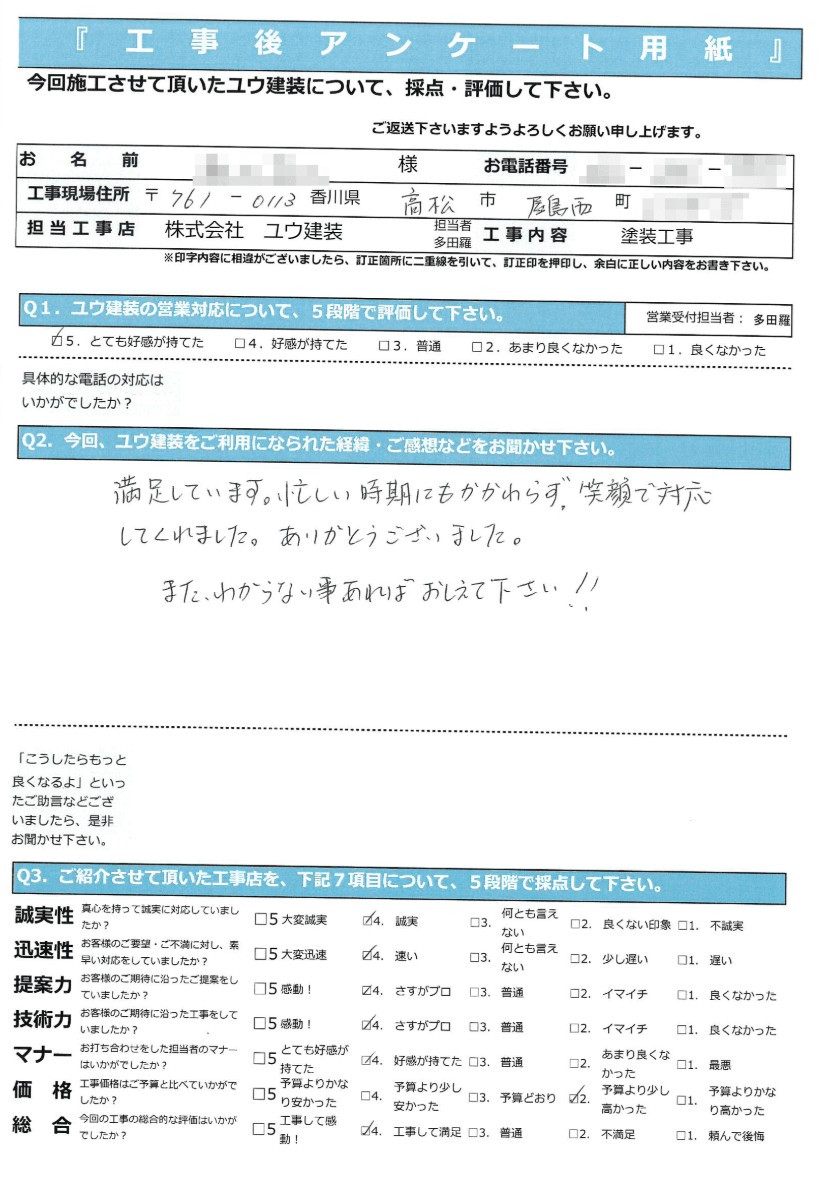 『工事後アンケート用紙』
今回施工させて頂いたユウ建装について、採点・評価して下さい。
ご返送下さいますようよろしくお願い申し上げます。
お名前 様 お電話番号 － －
工事現場住所 〒761-0113 香川県 高松 市 屋島西 町
担当工事店 株式会社 ユウ建装 担当者 多田羅 工事内容 塗装工事
※印字内容に相違がございましたら、訂正箇所に二重線を引いて、訂正印を押印し、余白に正しい内容をお書き下さい。
Q1．ユウ建装の営業対応について、５段階で評価して下さい。 営業受付担当者：多田羅
☑5．とても好感が持てた □4．好感が持てた □3．普通 □2．あまり良くなかった □1．良くなかった
具体的な電話の対応は
いかがでしたか？
Q2．今回、ユウ建装をご利用になられた経緯・ご感想などをお聞かせ下さい。
満足しています。忙しい時期にもかかわらず、笑顔で対応
してくれました。ありがとうございました。
また、わからない事あればおしえて下さい!!
「こうしたらもっと
良くなるよ」といっ
たご助言などござ
いましたら、是非
お聞かせ下さい。
Q3．ご紹介させて頂いた工事店を、下記７項目について、５段階で採点して下さい。
誠実性 真心を持って誠実に対応していましたか？ □5 大変誠実 ☑4. 誠実 □3. 何とも言えない □2. 良くない印象 □1. 不誠実
迅速性 お客様のご要望・ご不満に対し、素早い対応をしていましたか？ □5 大変迅速 ☑4. 速い □3. 何とも言えない □2. 少し遅い □1. 遅い
提案力 お客様のご期待に沿ったご提案をしていましたか？ □5 感動！ ☑4. さすがプロ □3. 普通 □2. イマイチ □1. 良くなかった
技術力 お客様のご期待に沿った工事をしていましたか？ □5 感動！ ☑4. さすがプロ □3. 普通 □2. イマイチ □1. 良くなかった
マナー お打ち合わせをした担当者のマナーはいかがでしたか？ □5 とても好感が持てた ☑4. 好感が持てた □3. 普通 □2. あまり良くなかった □1. 最悪
価格 工事価格はご予算と比べていかがでしたか？ □5 予算よりかなり安かった □4. 予算より少し安かった □3. 予算どおり ☑2. 予算より少し高かった □1. 予算よりかなり高かった
総合 今回の工事の総合的な評価はいかがでしたか？ □5 工事して感動！ ☑4. 工事して満足 □3. 普通 □2. 不満足 □1. 頼んで後悔